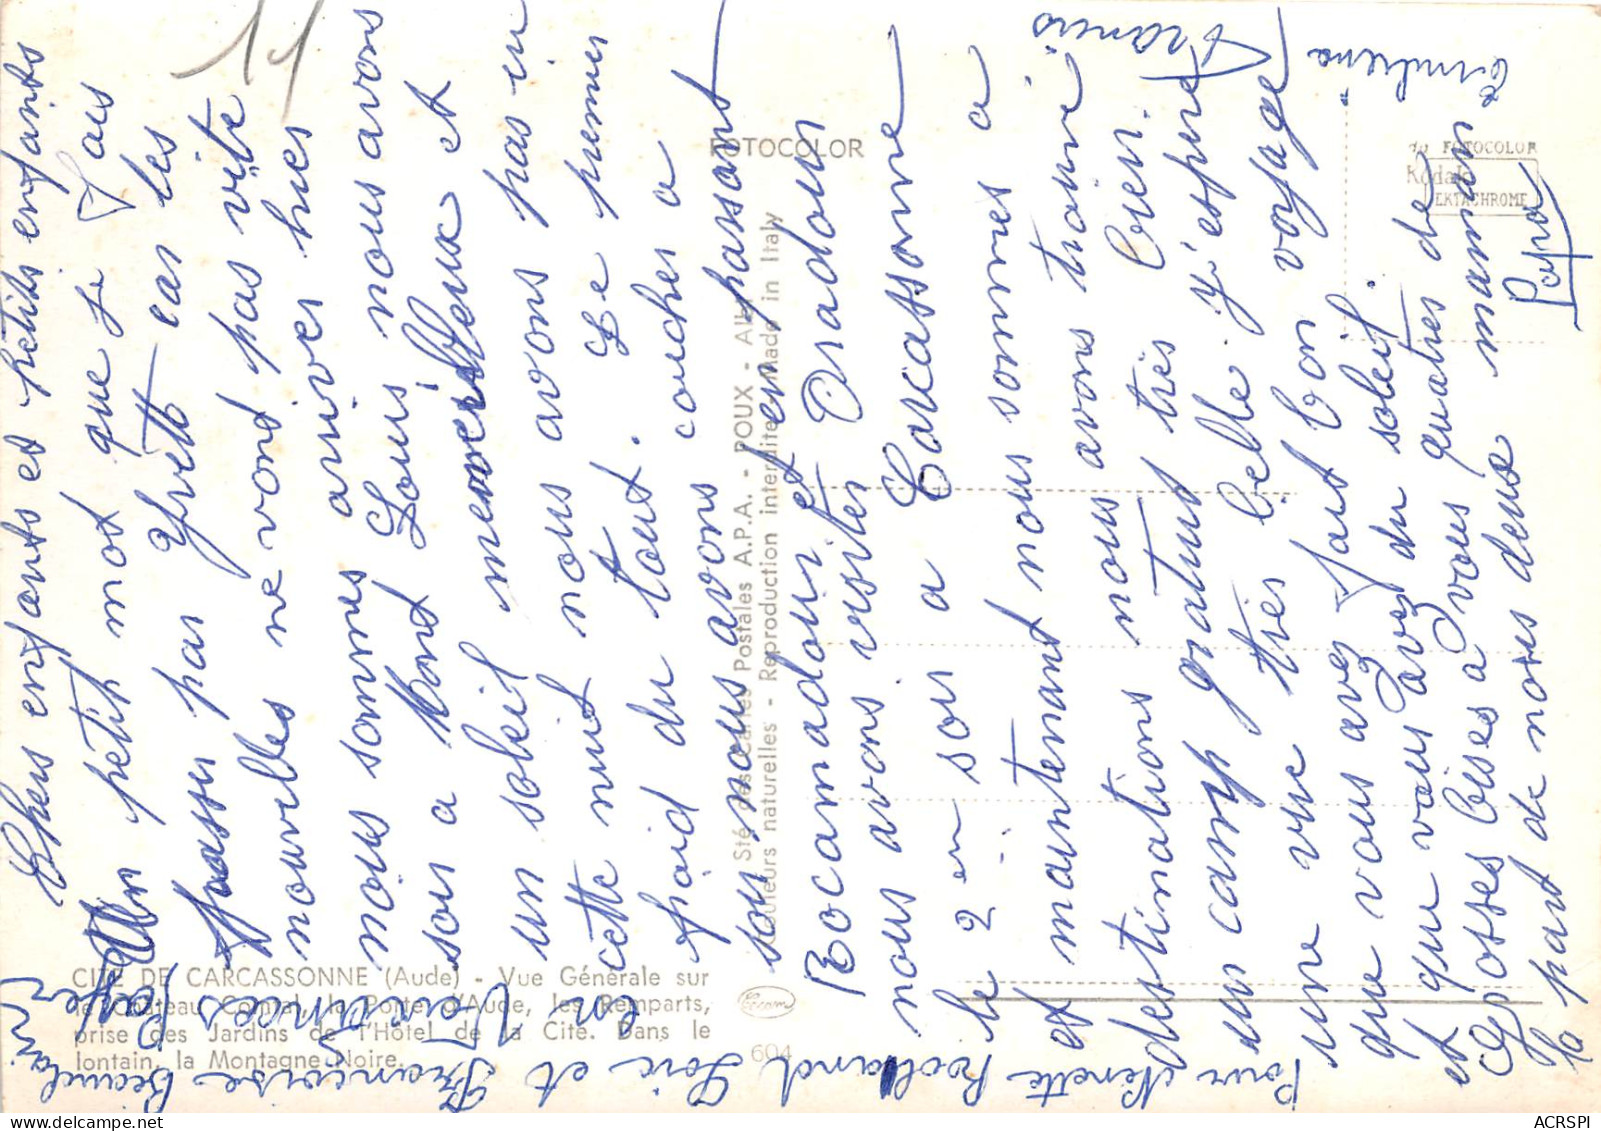 Chers enfants et petits enfants
Un petit mot que je fais
passer par Yvette car les
nouvelles ne vont pas vite
nous sommes arriver hier
soir a Mont Louis nous avons
un soleil merveilleux et
cette nuit nous avons pas eu
froid du tout. Le premier
soir nous avons coucher a
Rocamadour et en passant
nous avons visiter Oradour
le 2 em soir a Carcassonne
et maintenant nous sommes a
destinations nous avons trainé
un camp gratuit très bien.
une vue très belle j'espère
que vous avez fait bon voyage
que vous avez du soleil.
et Grosses bises a vous quatres de
la part de nous deux maman
Papa
Francis
Emiliena
Pour Nenette Rolland Loic et Françoise
en vacances
11
FOTOCOLOR
Sté des Cartes Postales A.P.A. - POUX - Albi
Couleurs naturelles - Reproduction interdite Made in Italy
FOTOCOLOR
Kodak
EKTACHROME
CITE DE CARCASSONNE (Aude) - Vue Générale sur
le Château Comtal, la Porte d'Aude, les Remparts,
prise des Jardins de l'Hôtel de la Cité. Dans le
lontain, la Montagne Noire.
604
ACRSPI